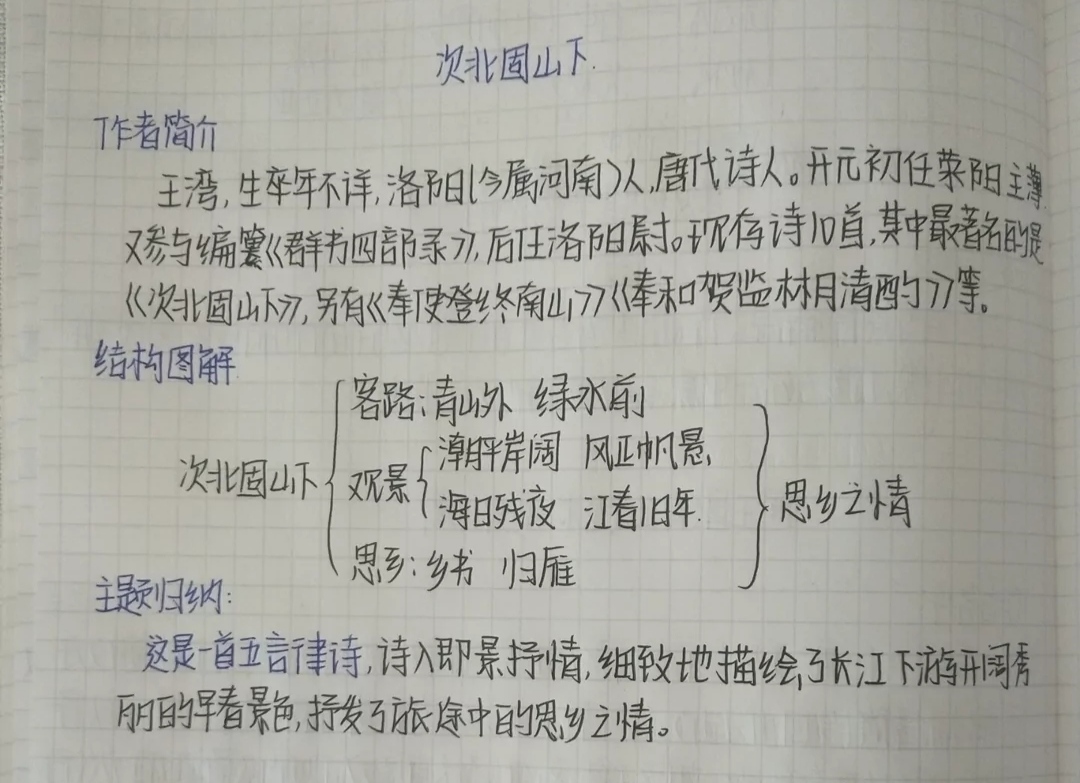 次北固山下.
作者简介
王湾,生卒年不详,洛阳(今属河南)人,唐代诗人。开元初任荥阳主薄
又参与编纂《群书四部录》,后任洛阳尉。现存诗10首,其中最著名的是
《次北固山下》,另有《奉使登终南山》《奉和贺监林月清酌》等。
结构图解
客路:青山外 绿水前
次北固山下 观景 潮平岸阔 风正帆悬
海日残夜 江春旧年 思乡之情
思乡:乡书 归雁
主题归纳:
这是一首五言律诗,诗人即景抒情,细致地描绘了长江下游开阔秀
丽的早春景色,抒发了旅途中的思乡之情。